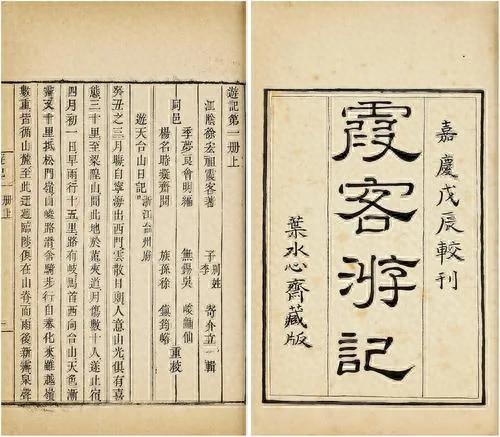 嘉慶戊辰較刊
霞客游記
葉水心齋藏版
遊記第一册上
江陰徐宏祖霞客著 子別姓李寄介立輯
季夢良會明編 無錫吳峻
同邑
楊名時凝齋閱 族孫徐鎮筠峪
重校
遊天台山日記浙江台州府
癸丑之三月晦自寧海出西門雲散日朗人意山光俱有喜
態三十里至梁隍山聞此地於菟夾道月傷數十人遂止宿
四月初一日早雨行十五里路有岐馬首西向台山天色漸
霽又十里抵松門嶺山峻路滑舍騎步行自奉化來雖越嶺
數重皆循山麓至此迂迴臨陟俱在山脊而雨後新霽泉聲